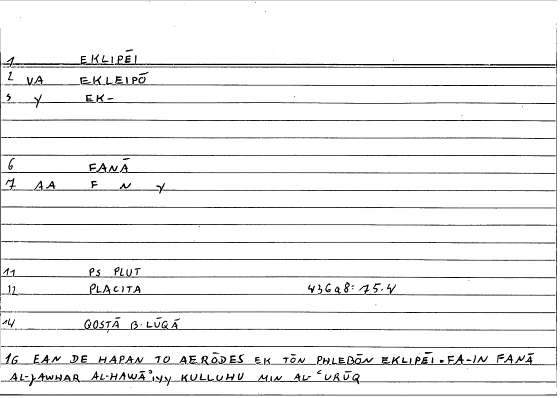 1 EKLIPĒI
2 VA EKLEIPŌ
3 Y EK-
6 FANĀ
7 AA F N Y
11 PS PLUT
12 PLACITA 436a8: 75.4
14 QOSṬĀ B. LŪQĀ
16 EAN DE HAPAN TO AERŌDES EK TŌN PHLEBŌN EKLIPĒI • FA-IN FANĀ
AL-ǦAWHAR AL-HAWĀʾIYY KULLUHU MIN AL-ʿURŪQ